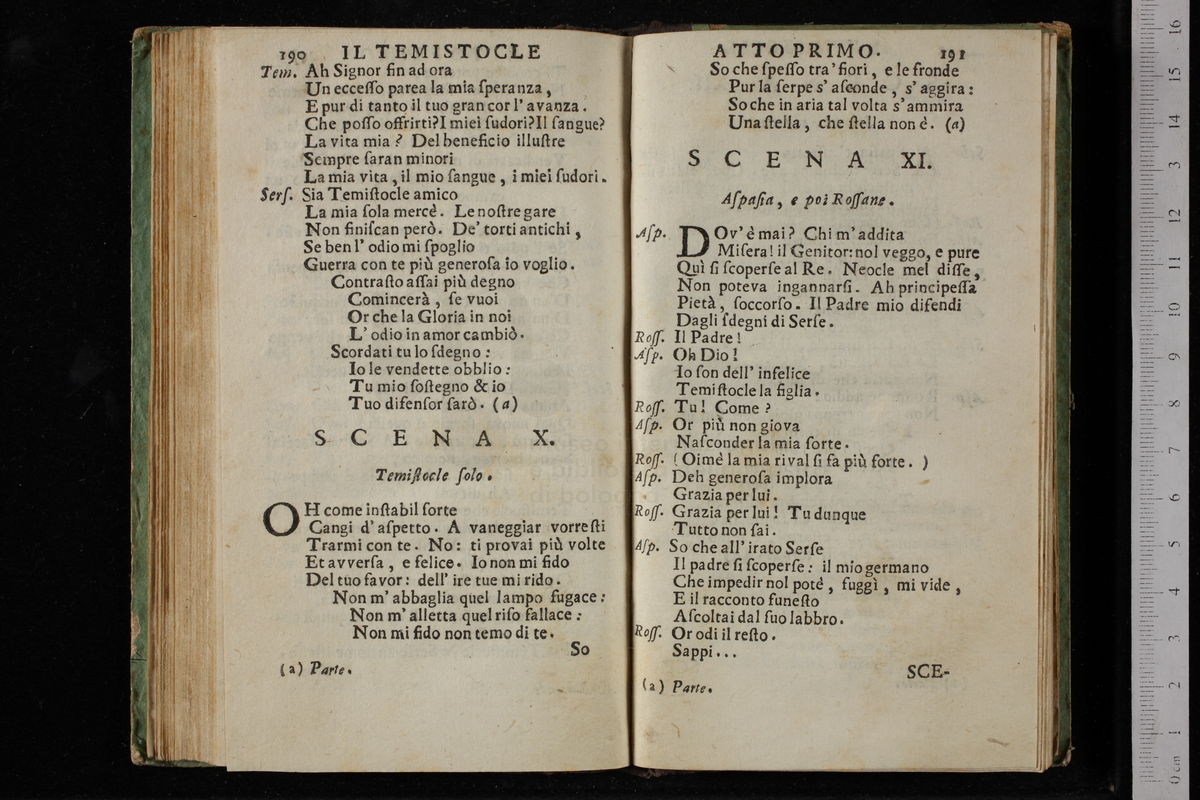 190 IL TEMISTOCLE
Tem. Ah Signor ſin ad ora
Un ecceſſo parea la mia ſperanza,
E pur di tanto il tuo gran cor l'avanza.
Che poſſo offrirti? I miei ſudori? Il ſangue?
La vita mia? Del beneficio illuſtre
Sempre ſaran minori
La mia vita, il mio ſangue, i miei ſudori.
Serſ. Sia Temiſtocle amico
La mia ſola mercè. Le noſtre gare
Non finiſcan però. De' torti antichi,
Se ben l'odio mi ſpoglio
Guerra con te più generoſa io voglio.
Contraſto aſſai più degno
Comincerà, ſe vuoi
Or che la Gloria in noi
L'odio in amor cambiò.
Scordati tu lo ſdegno:
Io le vendette obblio:
Tu mio ſoſtegno & io
Tuo difenſor ſarò. (a)
SCENA X.
Temiſtocle ſolo.
OH come inſtabil ſorte
Cangi d'aſpetto. A vaneggiar vorreſti
Trarmi con te. No: ti provai più volte
Et avverſa, e felice. Io non mi fido
Del tuo favor: dell'ire tue mi rido.
Non m'abbaglia quel lampo fugace:
Non m'alletta quel riſo fallace:
Non mi fido non temo di te.
So
(a) Parte.
ATTO PRIMO. 191
So che ſpeſſo tra' fiori, e le fronde
Pur la ſerpe s'aſconde, s'aggira:
So che in aria tal volta s'ammira
Una ſtella, che ſtella non è. (a)
SCENA XI.
Aſpaſia, e poi Roſſane.
Aſp. DOv'è mai? Chi m'addita
Miſera! il Genitor: nol veggo, e pure
Quì ſi ſcoperſe al Re. Neocle mel diſſe,
Non poteva ingannarſi. Ah principeſſa
Pietà, ſoccorſo. Il Padre mio difendi
Dagli ſdegni di Serſe.
Roſſ. Il Padre!
Aſp. Oh Dio!
Io ſon dell'infelice
Temiſtocle la figlia.
Roſſ. Tu! Come?
Aſp. Or più non giova
Naſconder la mia ſorte.
Roſſ. (Oimè la mia rival ſi fa più forte.)
Aſp. Deh generoſa implora
Grazia per lui.
Roſſ. Grazia per lui! Tu dunque
Tutto non ſai.
Aſp. So che all'irato Serſe
Il padre ſi ſcoperſe: il mio germano
Che impedir nol potè, fuggì, mi vide,
E il racconto funeſto
Aſcoltai dal ſuo labbro.
Roſſ. Or odi il reſto.
Sappi...
SCE-
(a) Parte.
0 cm 1 2 3 4 5 6 7 8 9 10 11 12 13 14 15 16